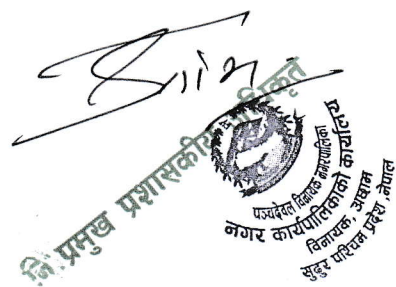 नि. प्रमुख प्रशासकीय अधिकृत
पञ्चदेवल विनायक नगरपालिका
नगर कार्यपालिकाको कार्यालय
विनायक, अछाम
सुदुर पश्चिम प्रदेश, नेपाल